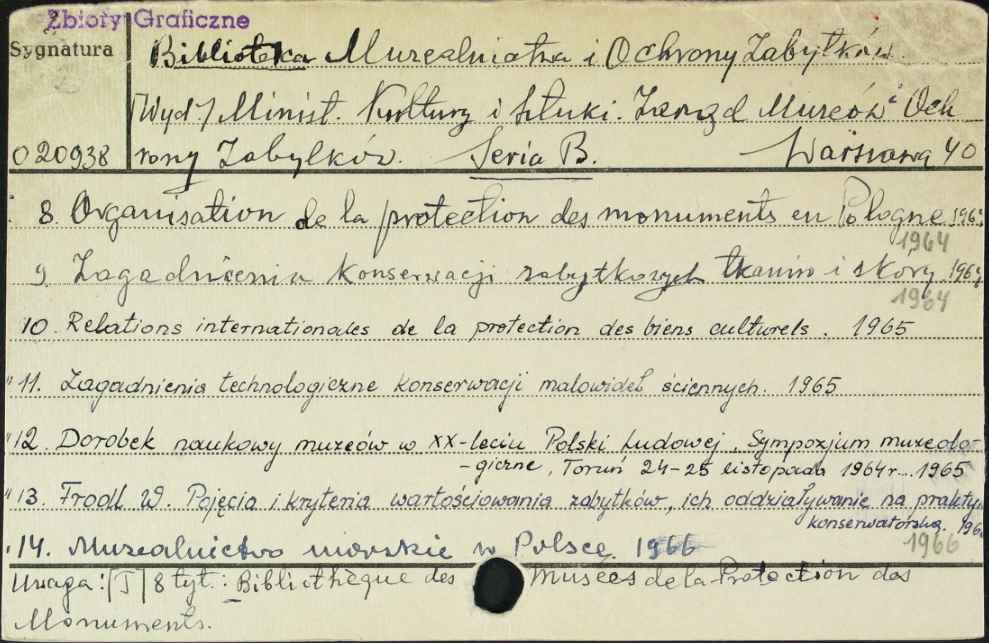 Zbiory Graficzne
Sygnatura
Biblioteka Muzealnictwa i Ochrony Zabytków
[Wyd.] Minist. Kultury i Sztuki. Zarząd Muzeów i Och
020938
rony Zabytków. Seria B. Warszawa 40
8. Organisation de la protection des monuments en Pologne 196
1964
9. Zagadnienia konserwacji zabytkowych tkanin i skóry 1964
1964
10. Relations internationales de la protection des biens culturels. 1965
"11. Zagadnienia technologiczne konserwacji malowideł ściennych. 1965
"12. Dorobek naukowy muzeów w XX-leciu Polski Ludowej. Sympozjum muzeolo-
-giczne, Toruń 24-25 listopada 1964r. 1965
"13. Frodl W. Pojęcia i kryteria wartościowania zabytków, ich oddziaływanie na praktykę
konserwatorską. 196
1966
"14. Muzealnictwo morskie w Polsce. 1966
Uwaga: [T] 8 tyt.: Bibliothèque des Musées de la Protection des
Monuments.